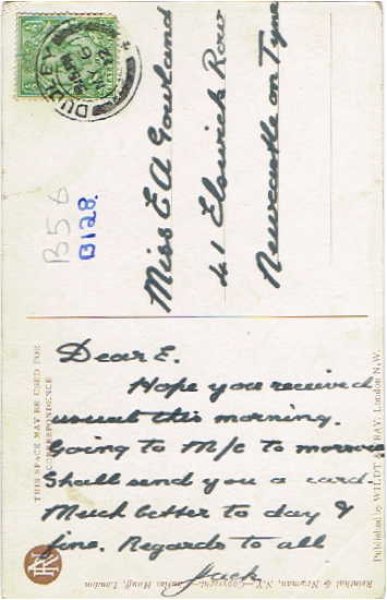 DUDLEY
Miss E A Gowland
41 Elswick Row
Newcastle on Tyne
B56
B128.
THIS SPACE MAY BE USED FOR
CORRESPONDENCE
Dear E.
Hope you received
usual this morning.
Going to M/c to morrow
Shall send you a card.
Much better to day &
fine. Regards to all
Jack
Published by WILDT & KRAY, London N.W.
Reinthal & Newman, N.Y.—Copyright—Charles Hauff, London
RN